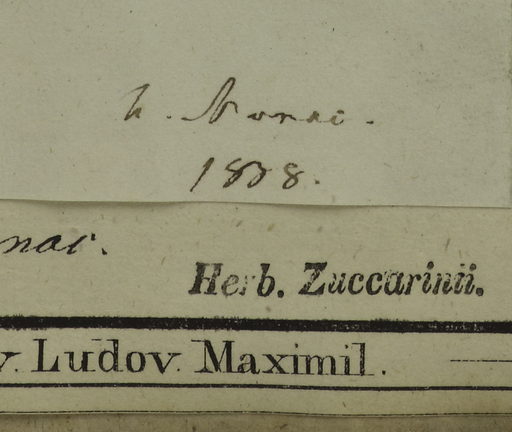 h. Monac.
1838.
nac.
Herb. Zuccarinii.
v. Ludov. Maximil.